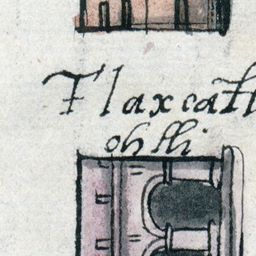 Tlaxcatl
ohtli